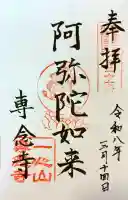 奉拝
令和八年
三月十四日
阿弥陀如来
専念寺